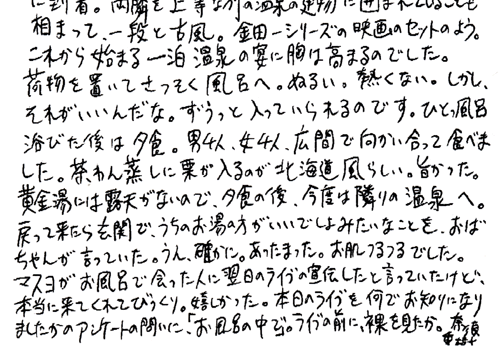 に到着。両脇を上等な
相まって、一段と古風。金田一シリーズの映画のセットのよう。
これから始まる一泊温泉の宴に胸は高まるのでした。
荷物を置いてさっそく風呂へ。ぬるい。熱くない。しかし、
それがいいんだな。ずうっと入っていられるのです。ひとっ風呂
浴びた後は夕食。男4人、女4人、広間で向かい合って食べま
した。茶わん蒸しに栗が入るのが北海道風らしい。旨かった。
黄金湯には露天がないので、夕食の後、今度は隣りの温泉へ。
戻って来たら玄関で、うちのお湯の方がいいでしょみたいなことを、おば
ちゃんが言っていた。うん、確かに。あったまった。お肌つるつるでした。
マスヨがお風呂で会った人に翌日のライブの宣伝したと言っていたけど、
本当に来てくれてびっくり。嬉しかった。本日のライブを何でお知りになり
ましたかのアンケートの問いに、「お風呂の中で」。ライブの前に、裸を見たか。奈須
重樹